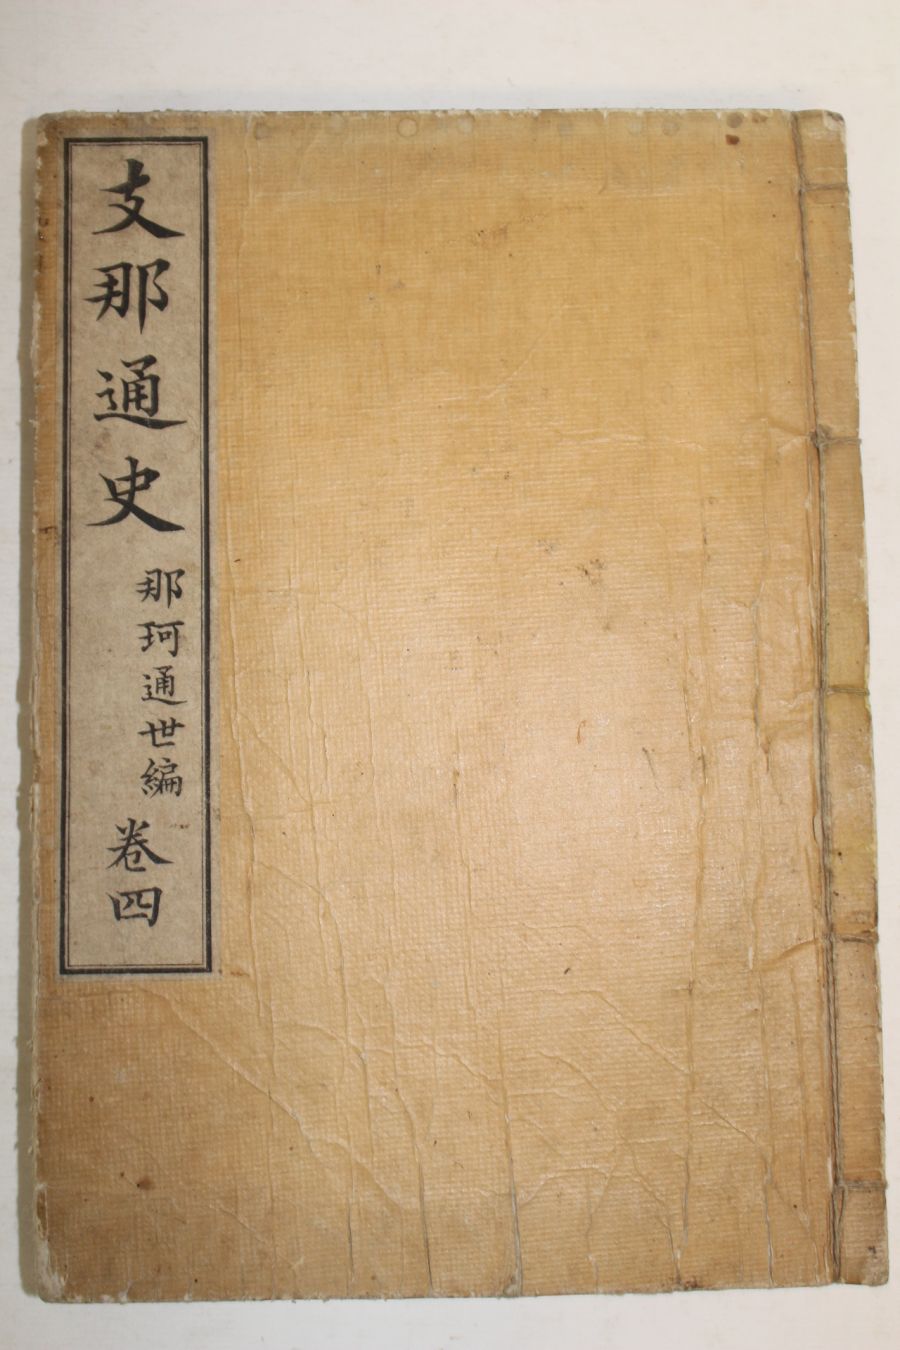 支那通史
那珂通世編
卷四